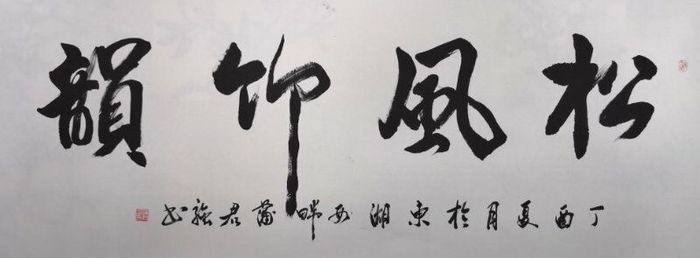 松風竹韻
丁酉夏月於東湖西畔蒲君強书